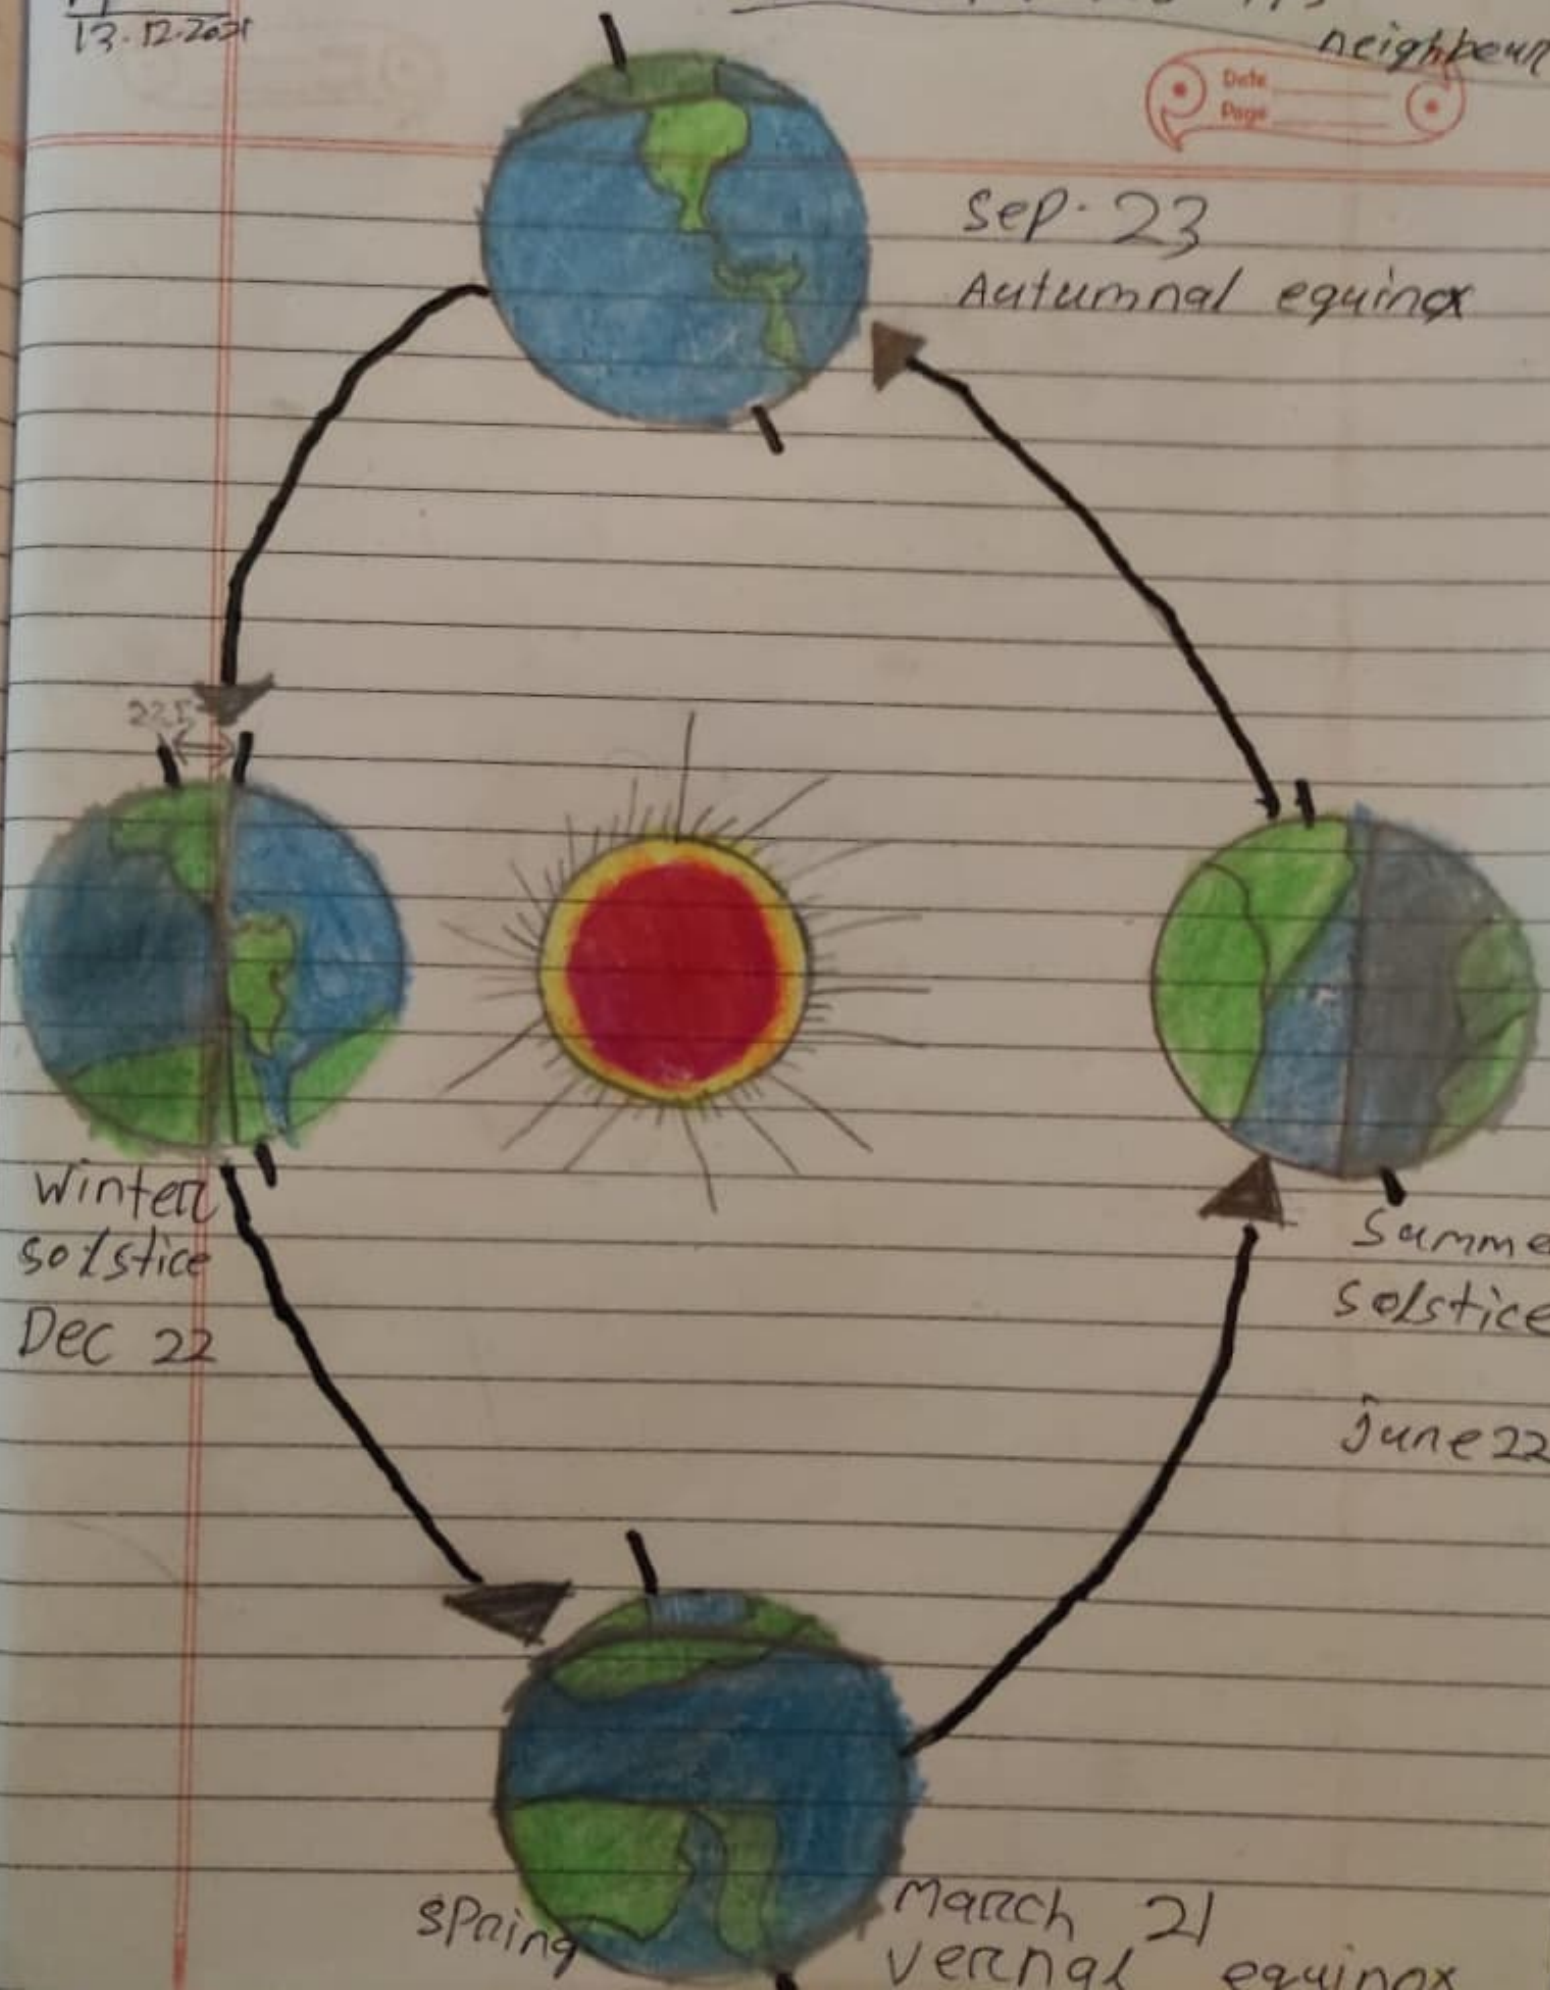 13.12.2021
neighbour
Date
Page
Sep. 23
Autumnal equinox
22.5
Winter
solstice
Dec 22
Summe
solstice
June 22
spring
March 21
vernal equinox